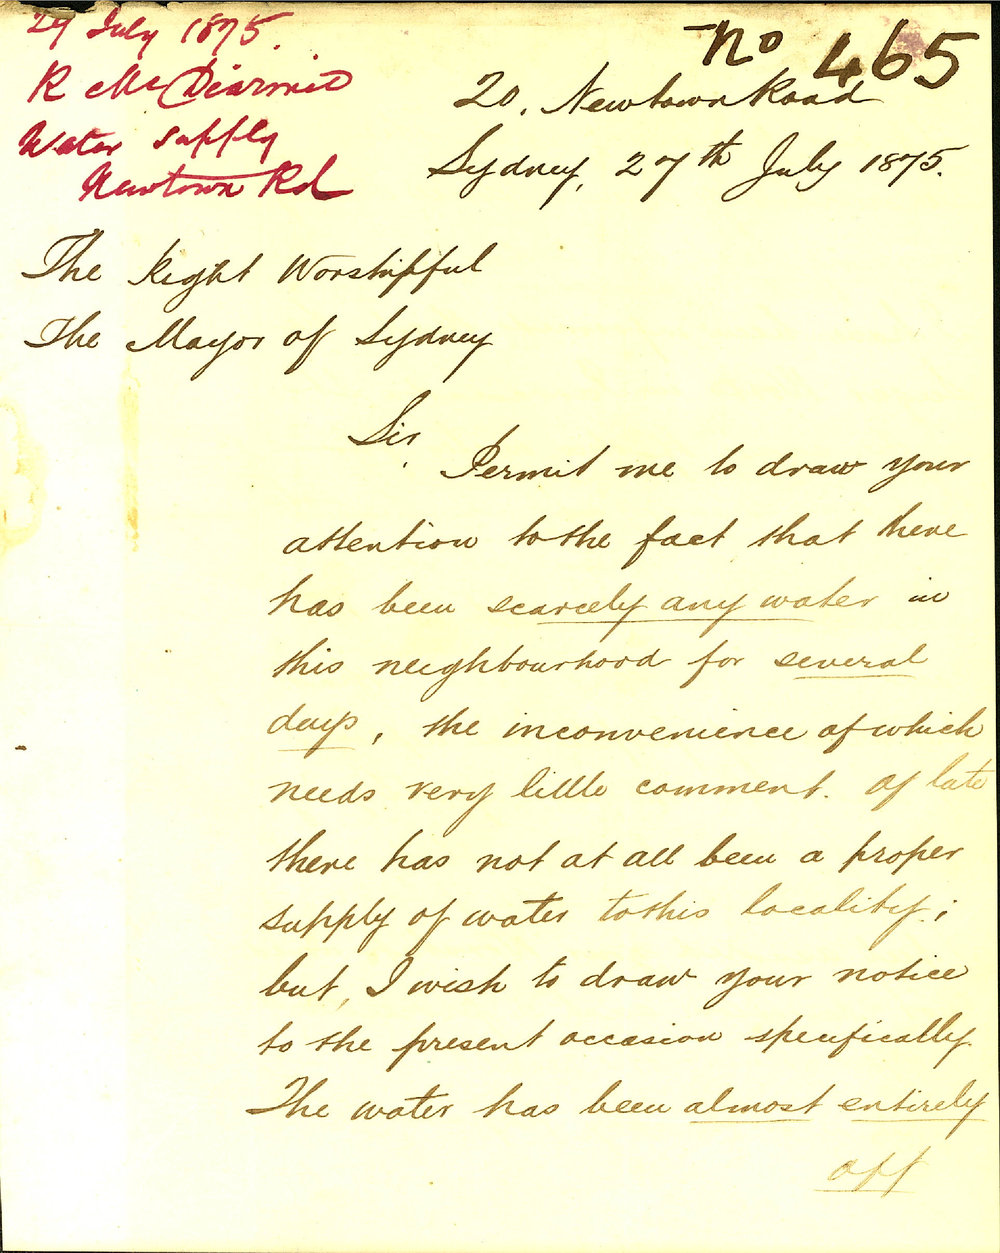 27 July 1875.
R McDiarmid
Water supply
Newtown Rd
No 465
20, Newtown Road
Sydney, 27th July 1875.
The Right Worshipful
The Mayor of Sydney
Sir,
Permit me to draw your
attention to the fact that there
has been scarcely any water in
this neighbourhood for several
days, the inconvenience of which
needs very little comment. Of late
there has not at all been a proper
supply of water to this locality;
but, I wish to draw your notice
to the present occasion specifically.
The water has been almost entirely
off